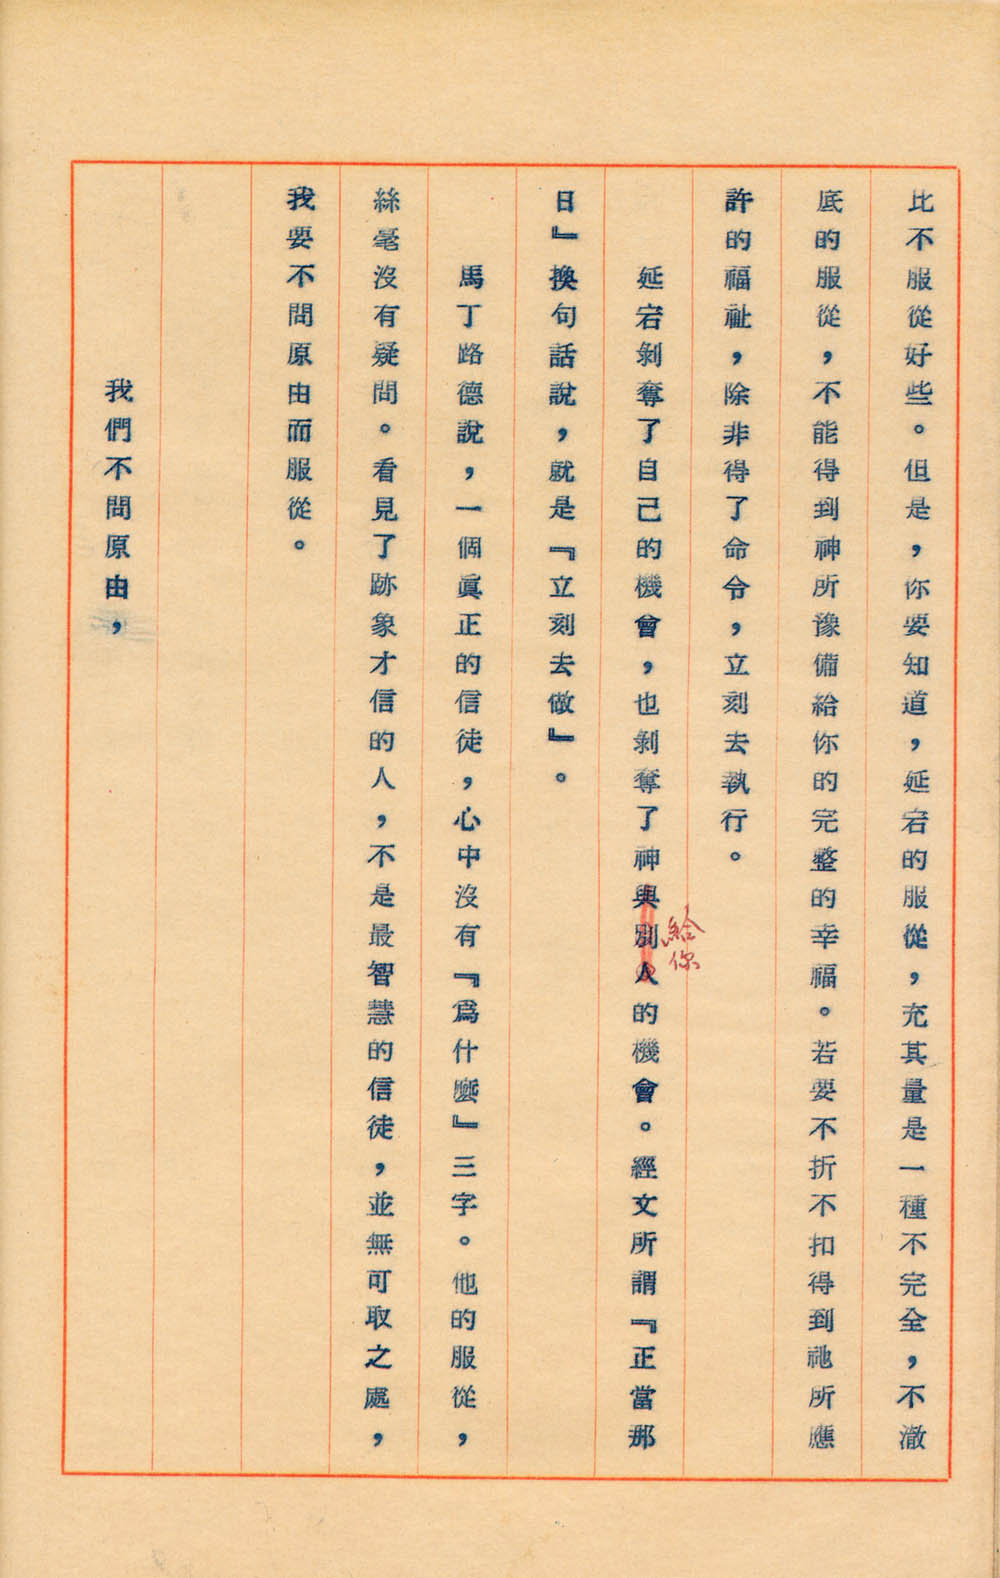 比不服從好些。但是，你要知道，延宕的服從，充其量是一種不完全，不澈
底的服從，不能得到神所豫備給你的完整的幸福。若要不折不扣得到祂所應
許的福祉，除非得了命令，立刻去執行。
延宕剝奪了自己的機會，也剝奪了神與別人的機會。經文所謂『正當那
給你
日』換句話說，就是『立刻去做』。
馬丁路德說，一個眞正的信徒，心中沒有『爲什麼』三字。他的服從，
絲毫沒有疑問。看見了跡象才信的人，不是最智慧的信徒，並無可取之處，
我要不問原由而服從。
我們不問原由，